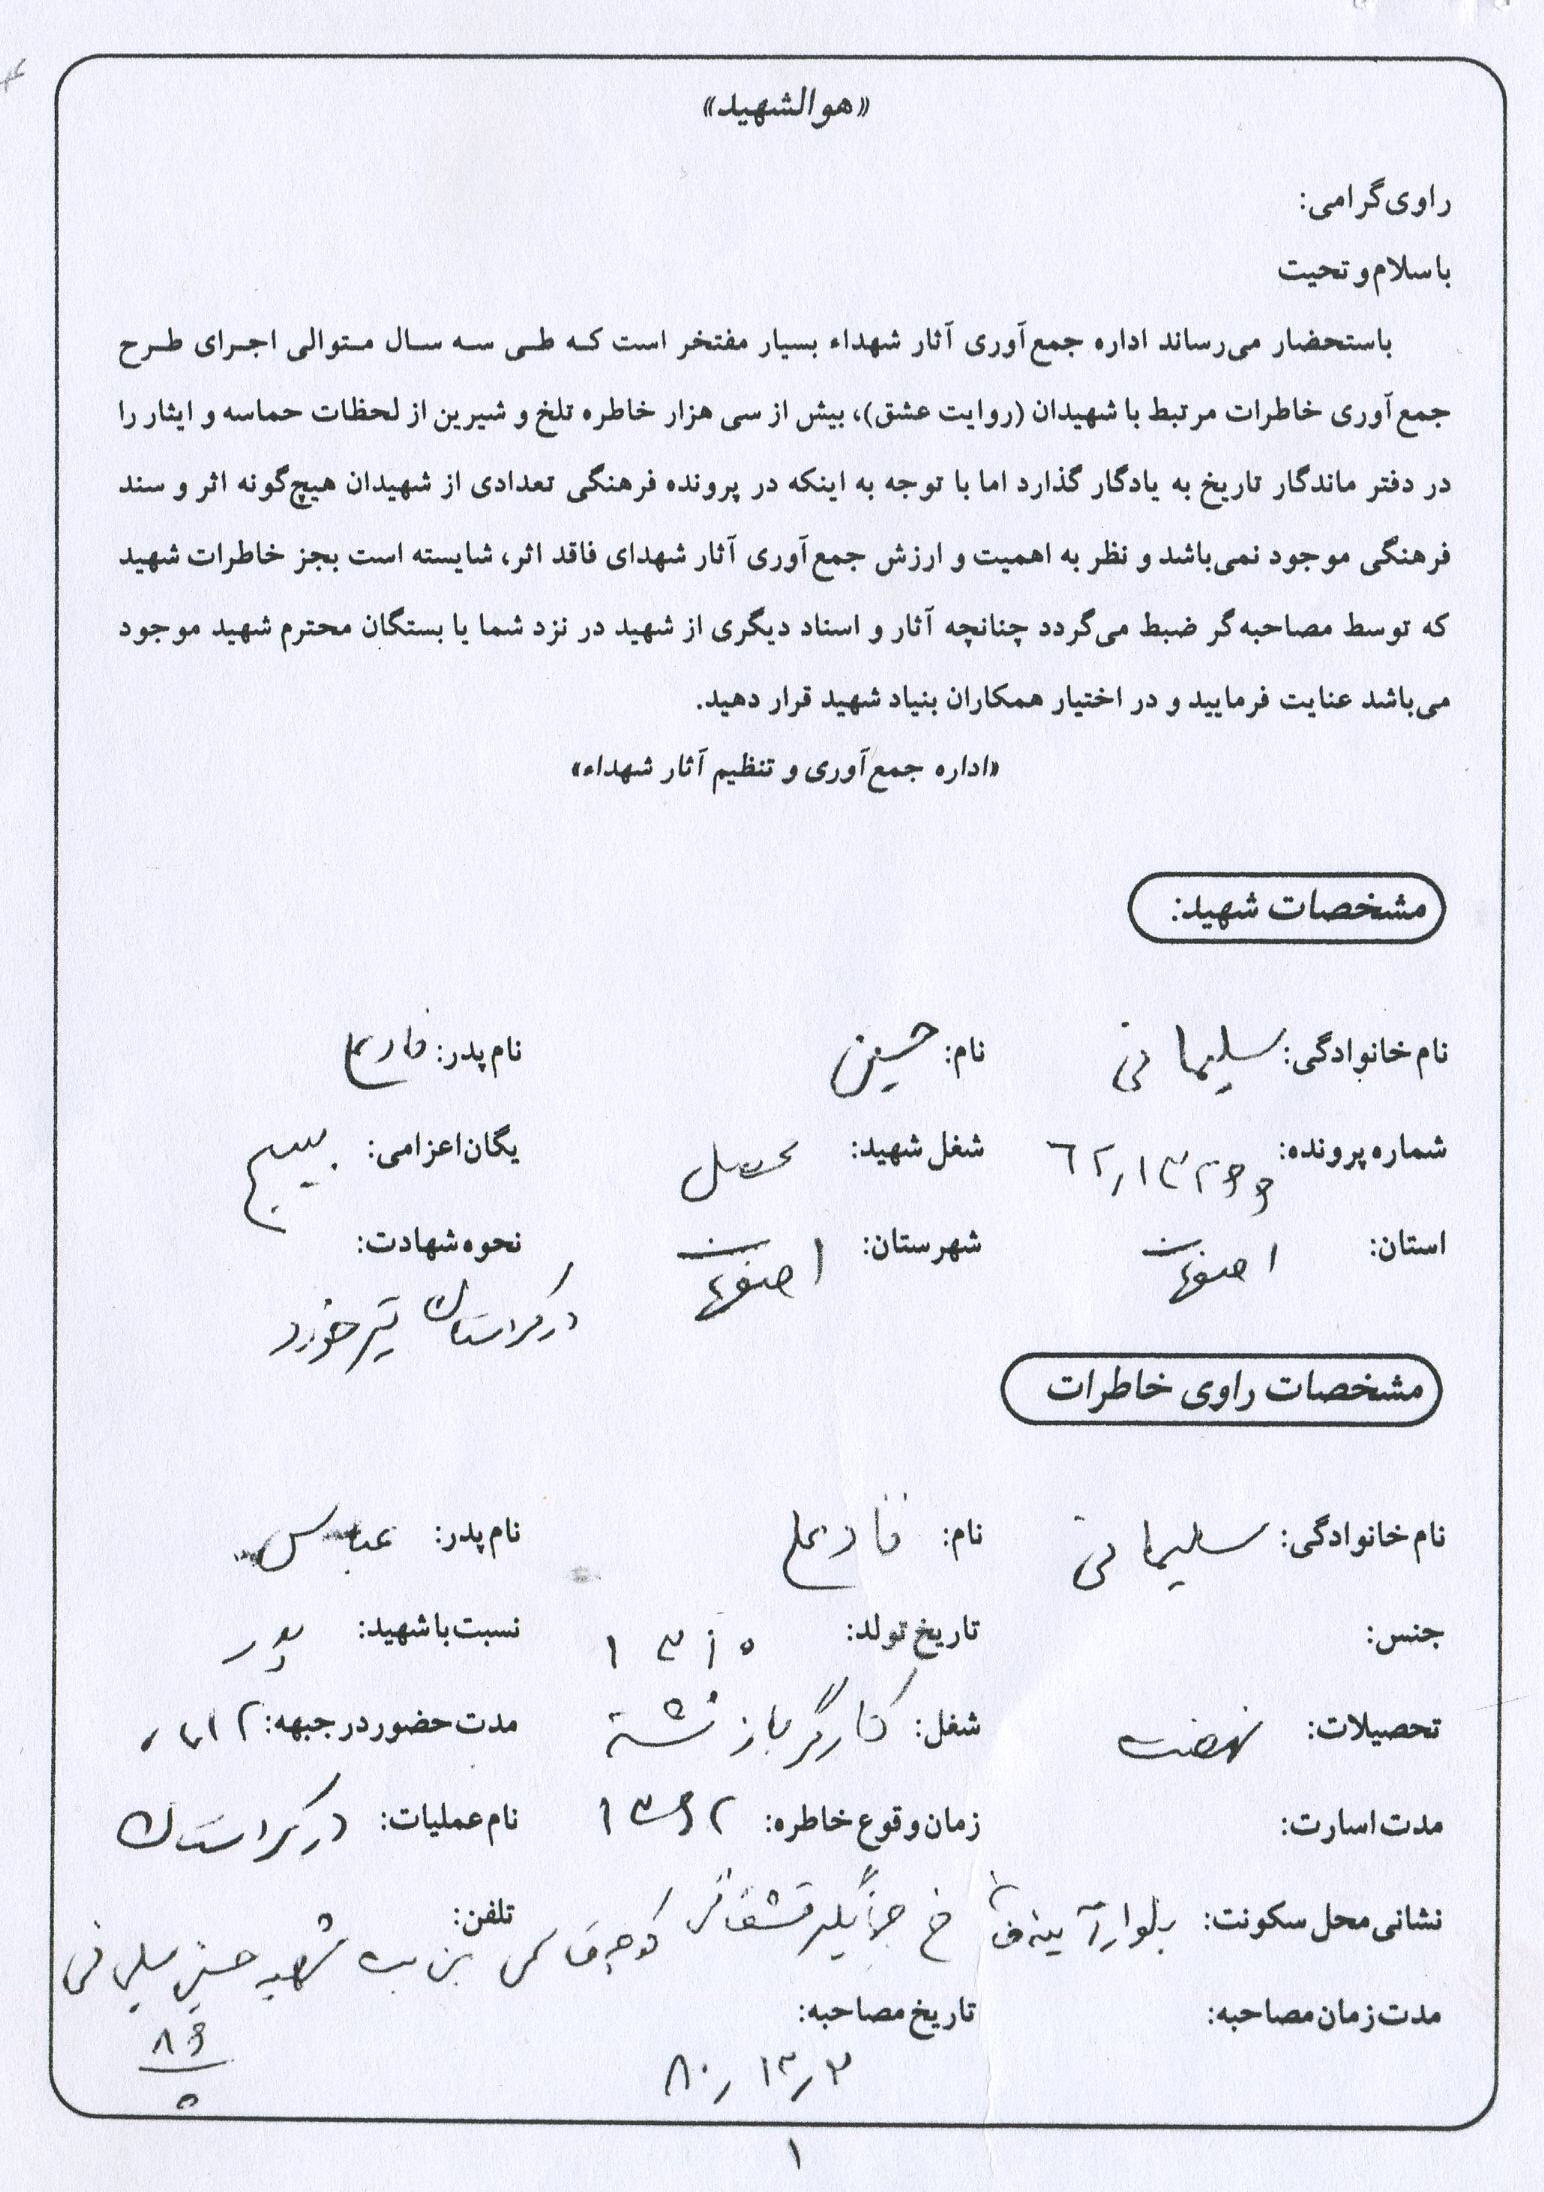 «هوالشهید»
راوی گرامی:
با سلام و تحیت
باستحضار می‌رساند اداره جمع‌آوری آثار شهداء بسیار مفتخر است که طی سه سال متوالی اجرای طرح
جمع‌آوری خاطرات مرتبط با شهیدان (روایت عشق)، بیش از سی هزار خاطره تلخ و شیرین از لحظات حماسه و ایثار را
در دفتر ماندگار تاریخ به یادگار گذارد اما با توجه به اینکه در پرونده فرهنگی تعدادی از شهیدان هیچ‌گونه اثر و سند
فرهنگی موجود نمی‌باشد و نظر به اهمیت و ارزش جمع‌آوری آثار شهدای فاقد اثر، شایسته است بجز خاطرات شهید
که توسط مصاحبه‌گر ضبط می‌گردد چنانچه آثار و اسناد دیگری از شهید در نزد شما یا بستگان محترم شهید موجود
می‌باشد عنایت فرمایید و در اختیار همکاران بنیاد شهید قرار دهید.
«اداره جمع‌آوری و تنظیم آثار شهداء»
مشخصات شهید:
نام خانوادگی: سلیمانی نام: حسین نام پدر:
شماره پرونده: شغل شهید: محصل یگان اعزامی: بسیج
استان: اصفهان شهرستان: اصفهان نحوه شهادت:
در کردستان تیر خورد
مشخصات راوی خاطرات
نام خانوادگی: سلیمانی نام: نام پدر: عباس
جنس: تاریخ تولد: ۱۳۱۵ نسبت با شهید: پدر
تحصیلات: نهضت شغل: کارگر بازنشسته مدت حضور در جبهه:
مدت اسارت: زمان وقوع خاطره: ۱۳۶۲ نام عملیات: در کردستان
نشانی محل سکونت: بلوار آیینه خانه خ کوچه بن بست شهید حسین سلیمانی تلفن:
مدت زمان مصاحبه: تاریخ مصاحبه:
۸۶
۵
۱